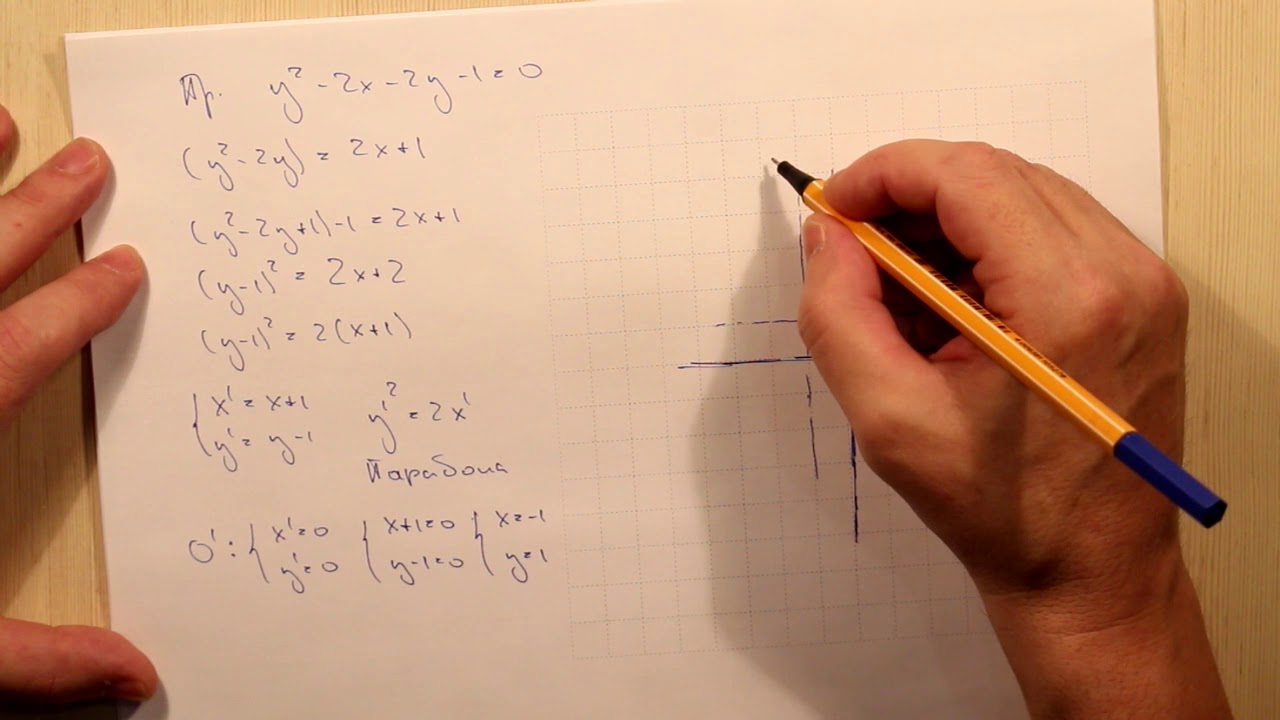 Пр. y² - 2x - 2y - 1 = 0
(y² - 2y) = 2x + 1
(y² - 2y + 1) - 1 = 2x + 1
(y - 1)² = 2x + 2
(y - 1)² = 2(x + 1)
{ x' = x + 1
{ y' = y - 1
y'² = 2x'
Парабола
O': { x' = 0 { x + 1 = 0 { x = -1
{ y' = 0 { y - 1 = 0 { y = 1